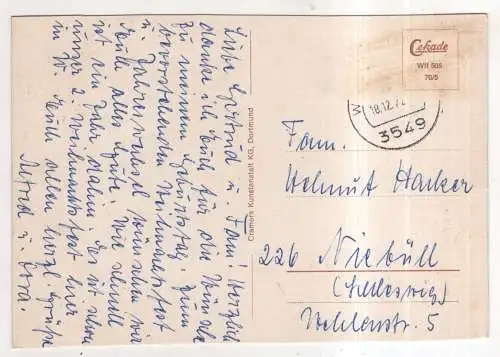 Liebe Gertrud u. Fam! Herzlich
danke ich Euch für die Wünsche
zu meinem Geburtstag. Zum
bevorstehenden Weihnachtsfest
u. Jahreswechsel wünschen wir
Euch alles Gute. Wie schnell
ist ein Jahr dahin. Es ist schon
unser 2. Weihnachtsfest hier
in W. Euch allen herzl. Grüße
u.
Cramers Kunstanstalt KG, Dortmund
Cekade
WII 506
70/5
18.12.7
3549
Fam.
Helmut Harker
226 Niebüll
(Schleswig)
5